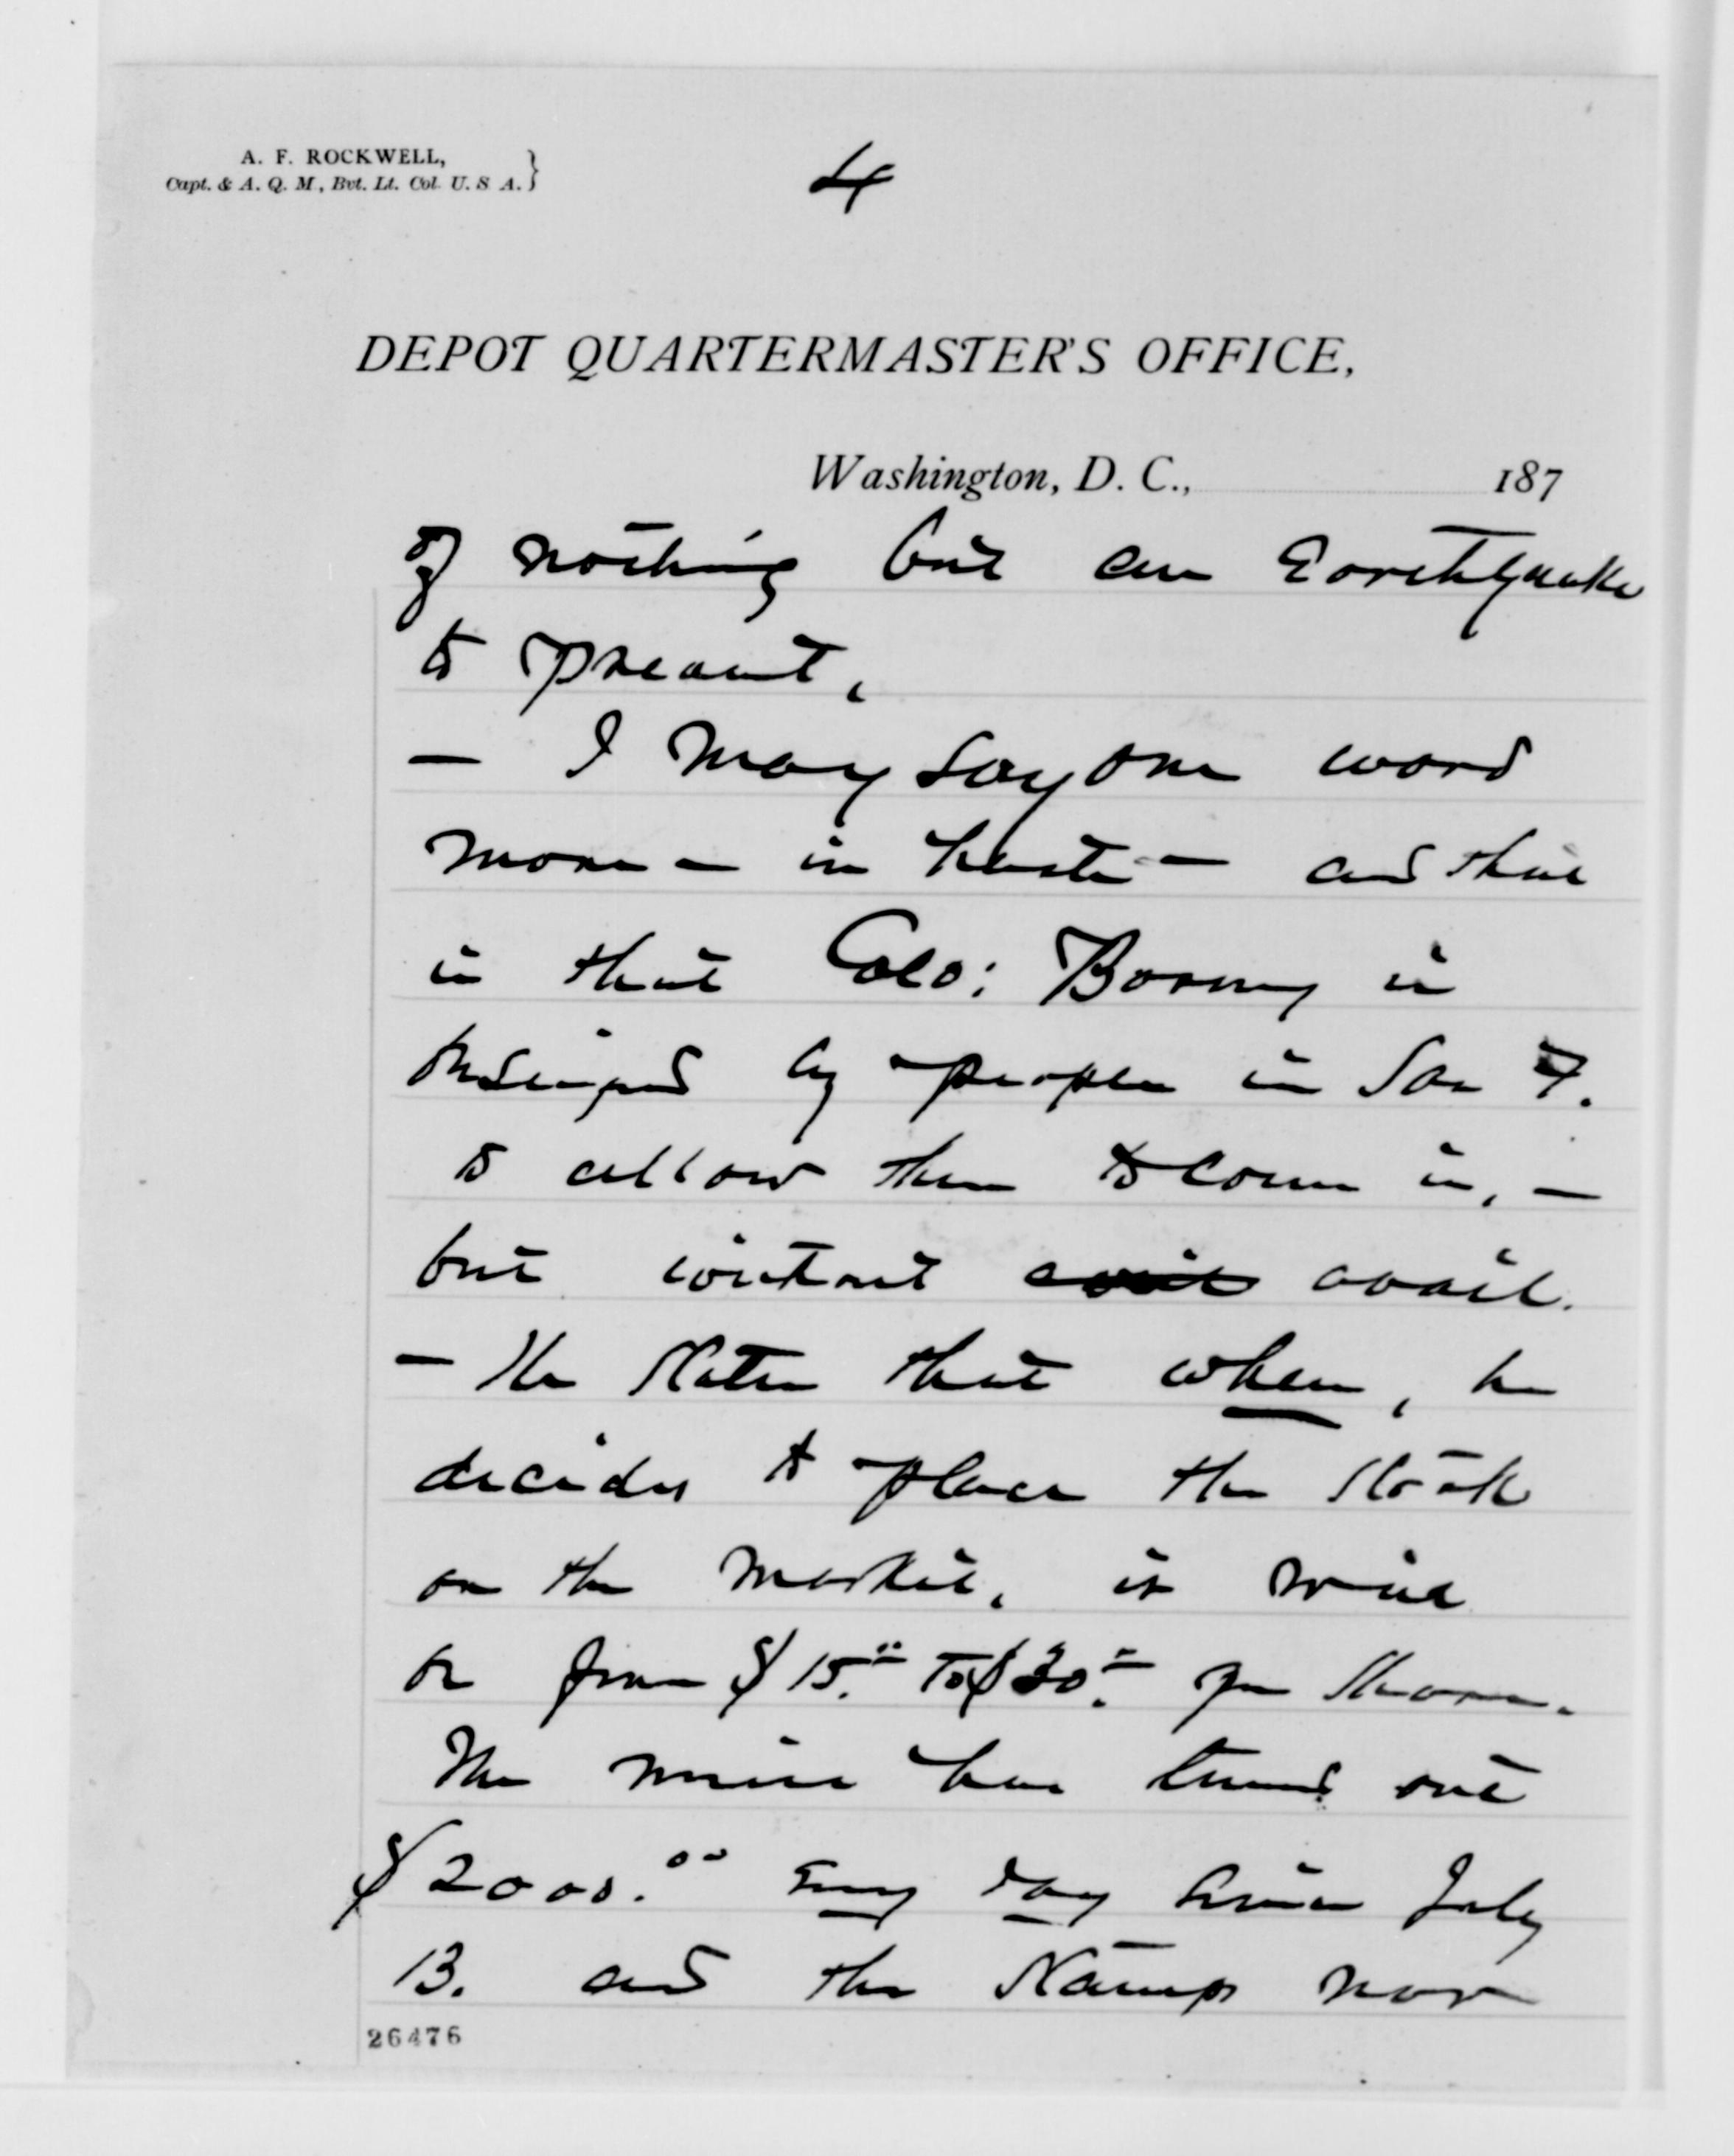 A. F. ROCKWELL,
Capt. & A. Q. M., Bvt. Lt. Col. U. S. A. }
4
DEPOT QUARTERMASTER'S OFFICE,
Washington, D. C., 187
of nothing but an Earthquake
to prevent.
— I may say one word
more — in haste — and that
is that Colo: Boany is
besieged by people in San F.
to allow them to come in, —
but without avail avail.
— He states that when, he
decides to place the stock
on the market, it will
be from $15.00 to $20.00 per share.
The mine has turned out
$2000.00 every day since July
13. and the stamps now
26476